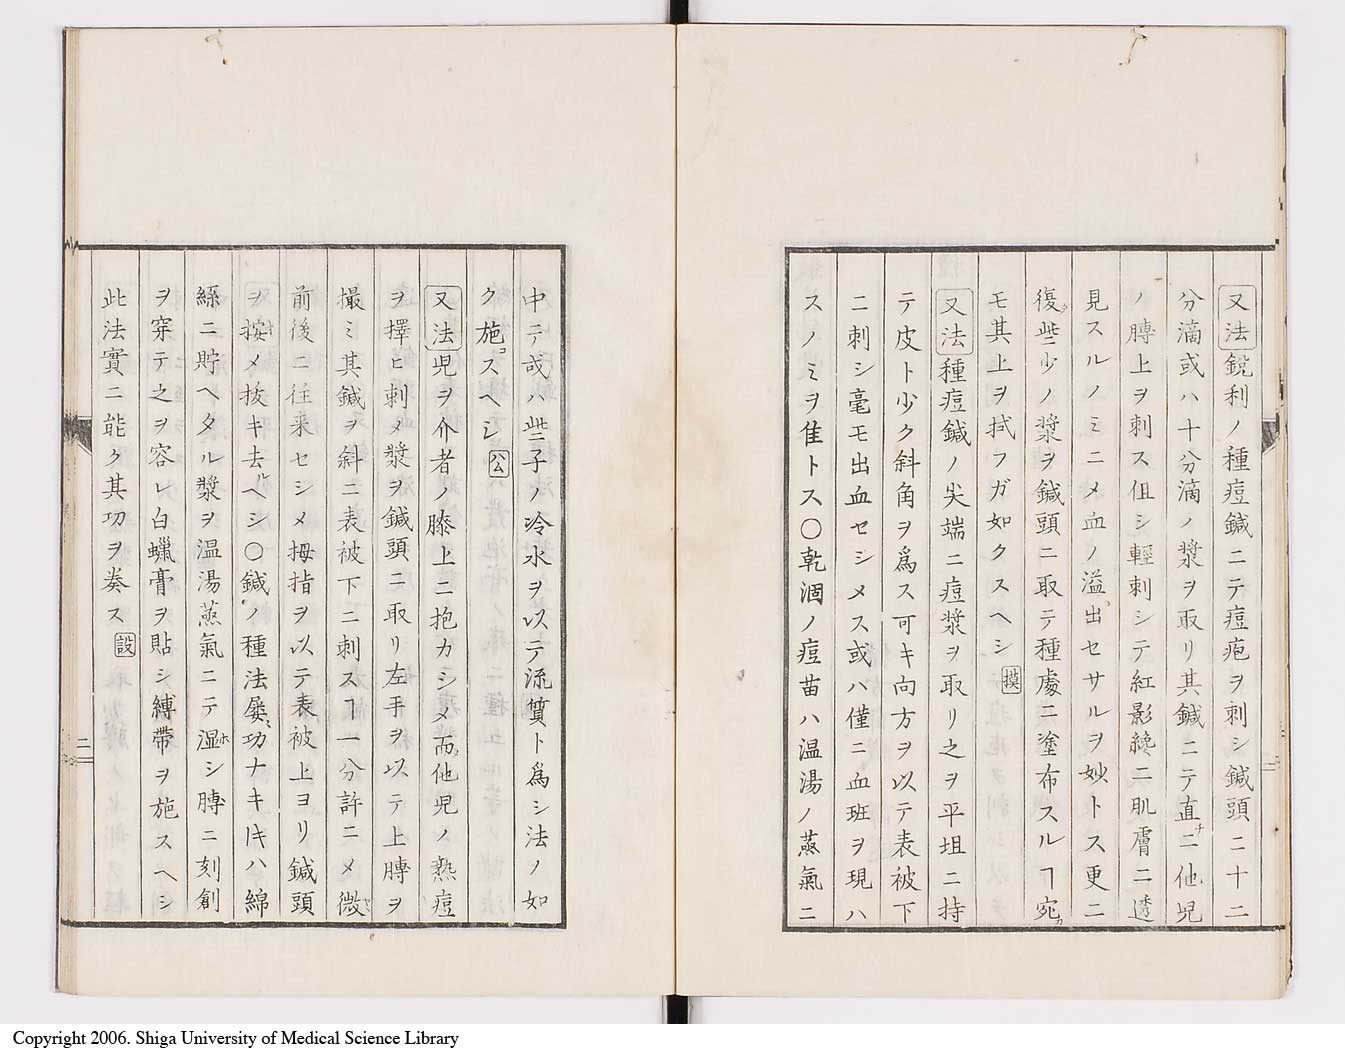 又法鋭利ノ種痘鍼ニテ痘疱ヲ刺シ鍼頭ニ十二
分滴或ハ十分滴ノ漿ヲ取リ其鍼ニテ直チニ他児
ノ膊上ヲ刺ス但シ輕刺シテ紅影纔ニ肌膚ニ透
見スルノミニメ血ノ溢出セサルヲ妙トス更ニ
復些少ノ漿ヲ鍼頭ニ取テ種處ニ塗布スルヿ宛
モ其上ヲ拭フガ如クスヘシ 摸
又法種痘鍼ノ尖端ニ痘漿ヲ取リ之ヲ平坦ニ持
テ皮ト少ク斜角ヲ爲ス可キ向方ヲ以テ表被下
ニ刺シ毫モ出血セシメス或ハ僅ニ血班ヲ現ハ
スノミヲ佳トス〇乾涸ノ痘苗ハ温湯ノ蒸氣ニ
中テ或ハ些子ノ冷水ヲ以テ流質ト爲シ法ノ如
ク施コスヘシ 公
又法児ヲ介者ノ膝上ニ抱カシメ而他児ノ熟痘
ヲ擇ヒ刺メ漿ヲ鍼頭ニ取リ左手ヲ以テ上膊ヲ
撮ミ其鍼ヲ斜ニ表被下ニ刺スヿ一分許ニメ微
前後ニ往来セシメ拇指ヲ以テ表被上ヨリ鍼頭
ヲ按メ抜キ去ルヘシ〇鍼ノ種法屡功ナキ𪜈ハ綿
絲ニ貯ヘタル漿ヲ温湯蒸氣ニテ湿ホシ膊ニ刻創
ヲ穿テ之ヲ容レ白蠟膏ヲ貼シ縛帶ヲ施スヘシ
此法實ニ能ク其功ヲ奏ス 設
二
Copyright 2006. Shiga University of Medical Science Library